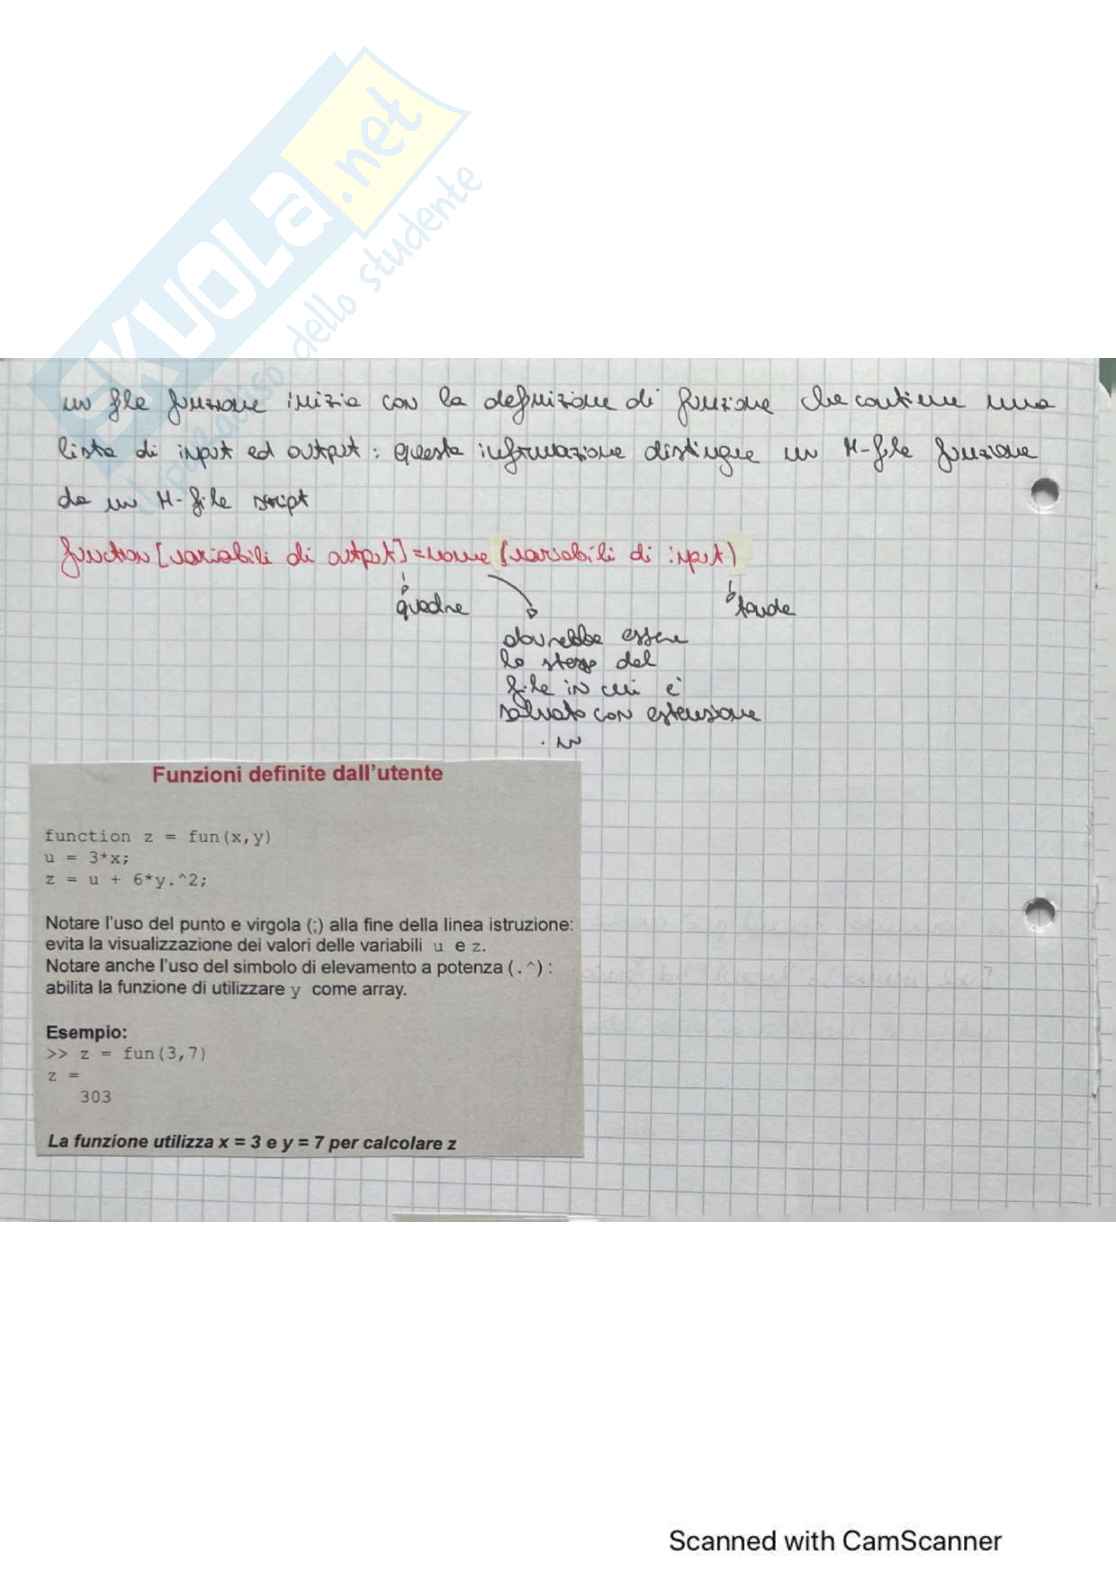 SKUOLA.net
paradiso dello studente
un file funzione inizia con la definizione di funzione che contiene una
lista di input ed output: questa informazione distingue un M-file funzione
da un M-file script
function [variabili di output] = nome (variabili di input)
quadre
tonde
dovrebbe essere
lo stesso del
file in cui è
salvato con estensione
.m
Funzioni definite dall'utente
function z = fun(x,y)
u = 3*x;
z = u + 6*y.^2;
Notare l'uso del punto e virgola (;) alla fine della linea istruzione:
evita la visualizzazione dei valori delle variabili u e z.
Notare anche l'uso del simbolo di elevamento a potenza (.^) :
abilita la funzione di utilizzare y come array.
Esempio:
>> z = fun(3,7)
z =
303
La funzione utilizza x = 3 e y = 7 per calcolare z
Scanned with CamScanner